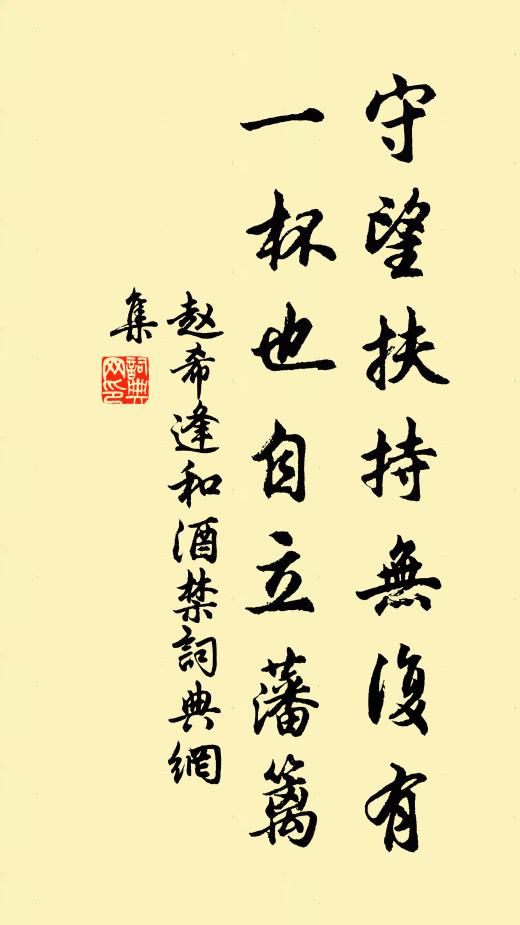 守望扶持無復有
一杯也自立藩篱
赵希逢和酒禁詞典網
集
詞典
网印